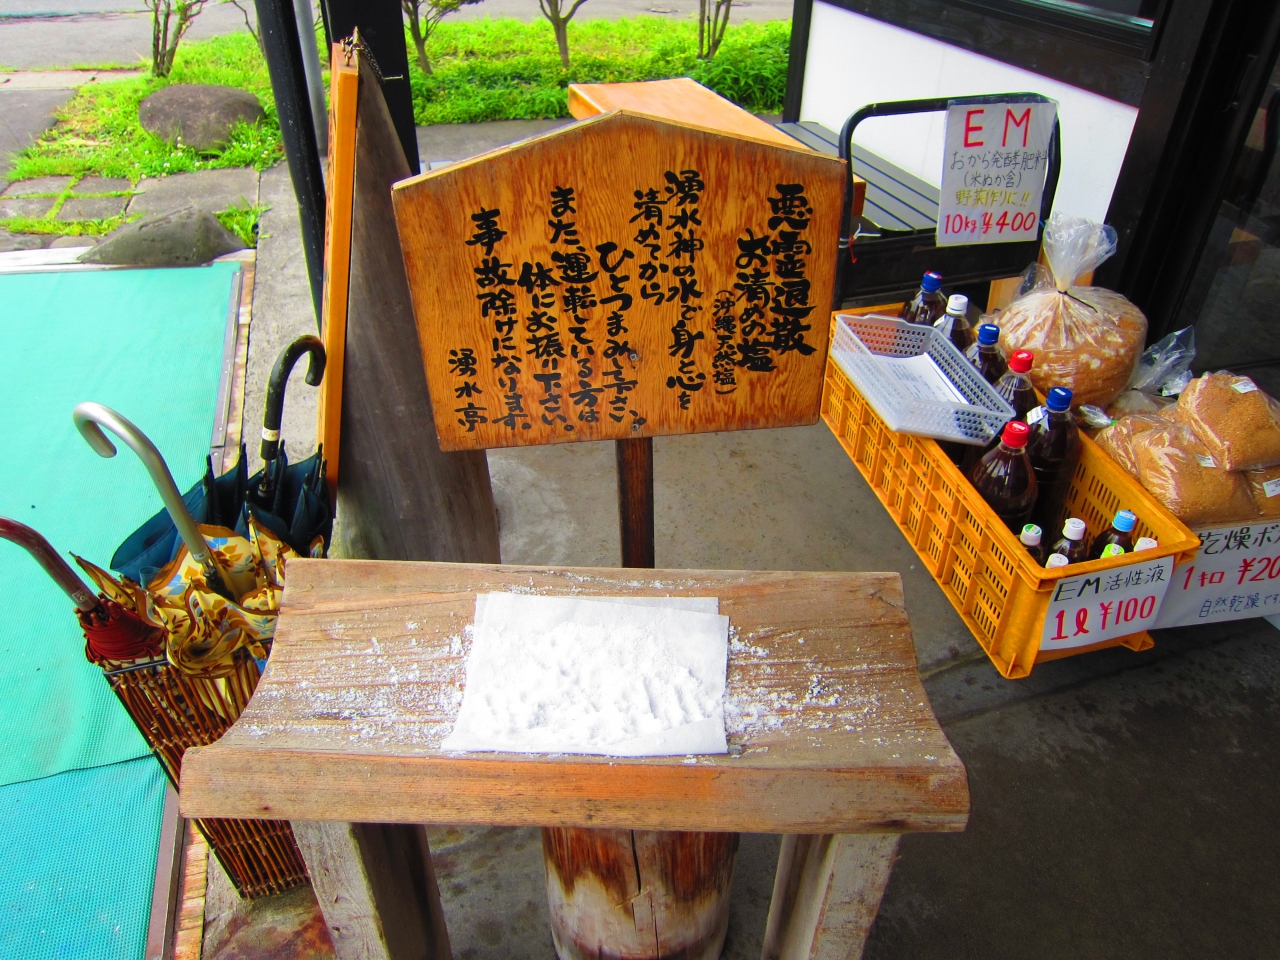 悪霊退散
お清めの塩
(沖縄天然塩)
湧水神の水で身と心を
清めてから
ひとつまみ下さい。
また、運転している方は
体にお振り下さい。
事故除けになります。
湧水亭
EM
おから発酵肥料
(米ぬか含)
野菜作りに!!
10kg ¥400
EM活性液
1ℓ ¥100
乾燥ボ
1キロ ¥20
自然乾燥です